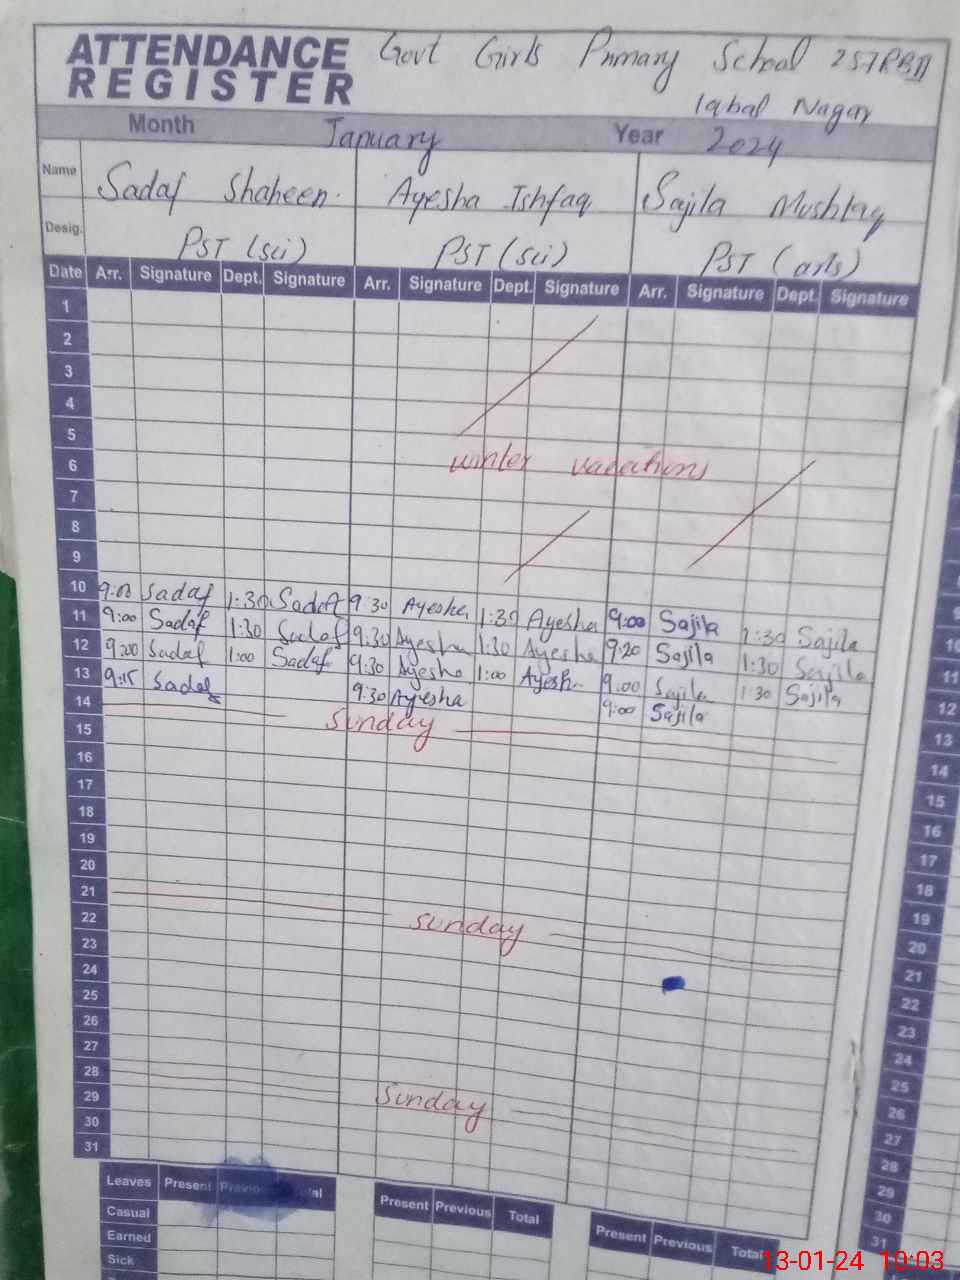 ATTENDANCE REGISTER Govt Girls Primary School 257RBII
Iqbal Nagar
Month January Year 2024
Name Sadaf Shaheen. Ayesha Ishfaq Sajila Mushtaq
Desig. PST (sci) PST (sci) PST (arts)
Date Arr. Signature Dept. Signature Arr. Signature Dept. Signature Arr. Signature Dept. Signature
1
2
3
4
5
6 winter vacations
7
8
9
10 9:00 Sadaf 1:30 Sadaf 9:30 Ayesha 1:30 Ayesha 9:00 Sajila 1:30 Sajila
11 9:00 Sadaf 1:30 Sadaf 9:30 Ayesha 1:30 Ayesha 9:20 Sajila 1:30 Sajila
12 9:00 Sadaf 1:00 Sadaf 9:30 Ayesha 1:00 Ayesha 9:00 Sajila 1:30 Sajila
13 9:15 Sadaf 9:30 Ayesha 9:00 Sajila
14 Sunday
15
16
17
18
19
20
21 Sunday
22
23
24
25
26
27
28 Sunday
29
30
31
Leaves Present Previous Total Present Previous Total Present Previous Total
Casual
Earned
Sick
10
11
12
13
14
15
16
17
18
19
20
21
22
23
24
25
26
27
28
29
30
31
13-01-24 10:03